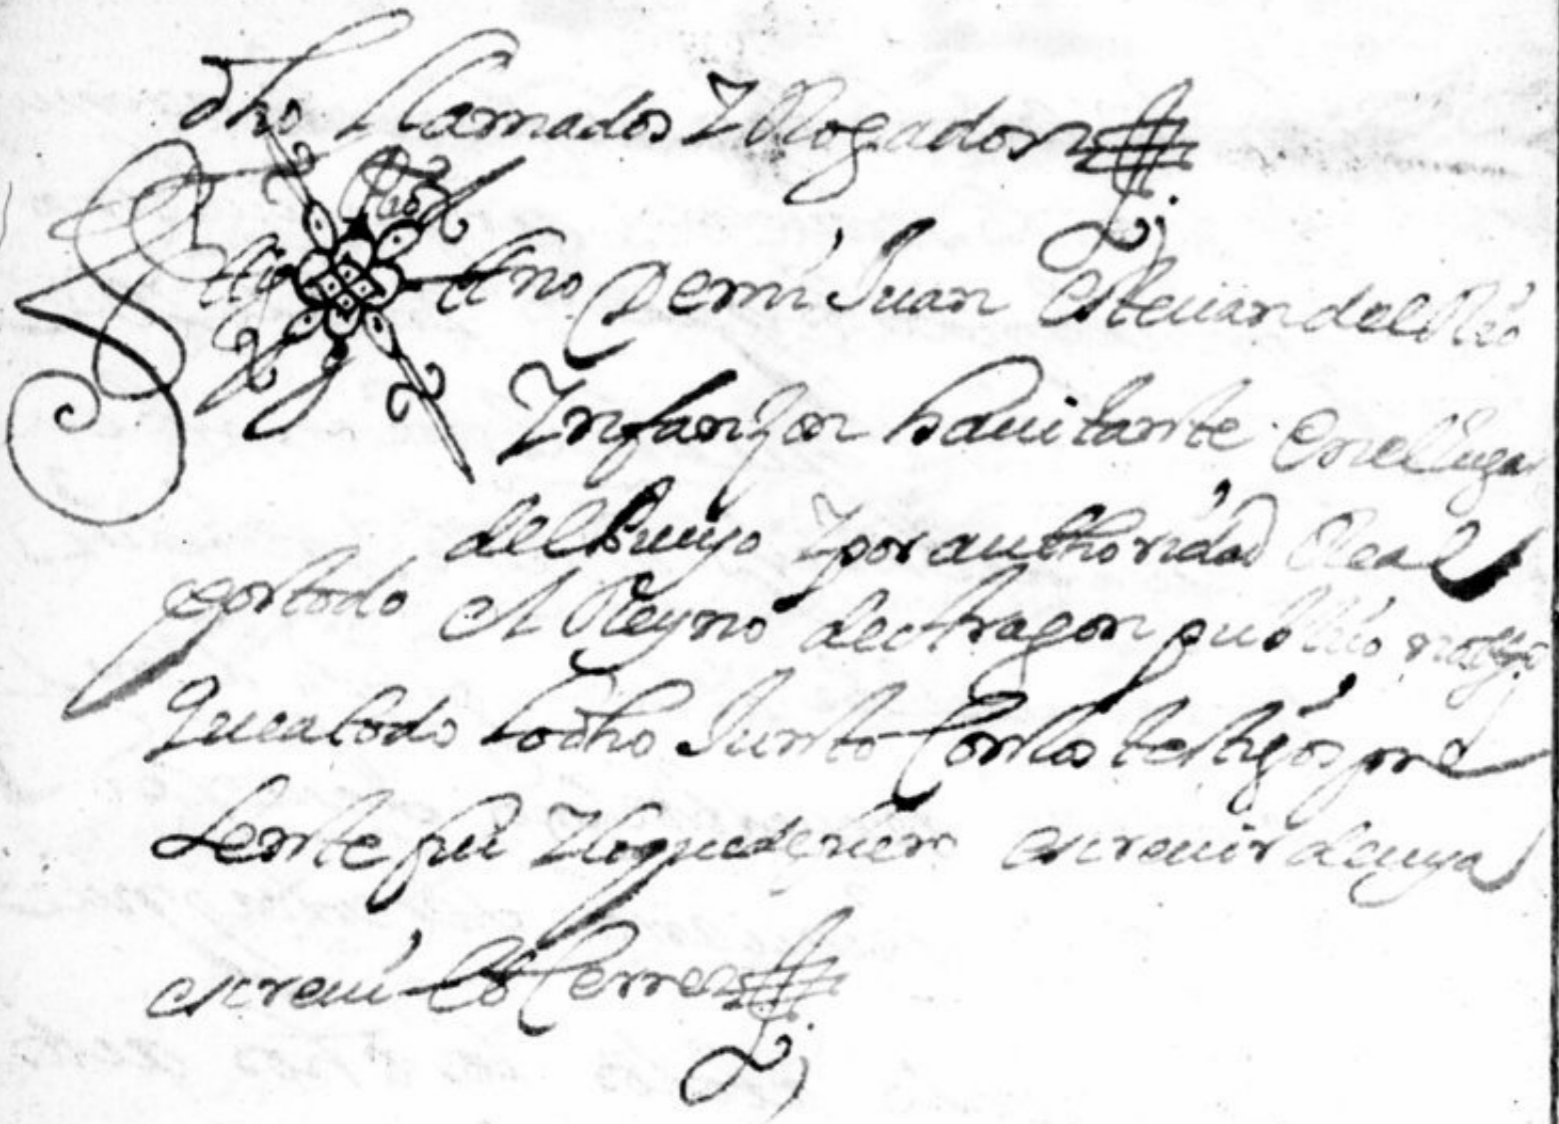 dho llamados Y Rogados
Sig no De mi Juan Esteuan del Rio
Ynfanzon hauitante en el lugar
del Pueyo Y por authoridad Real
por todo el Reyno de Aragon publico
que a todo lo dho Junto Con los testigos pre
sente fui Y escreuir
escreui Et Cerre